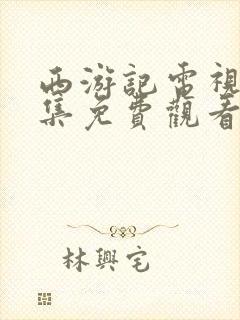 西游記電視
集免費觀看
林興宅